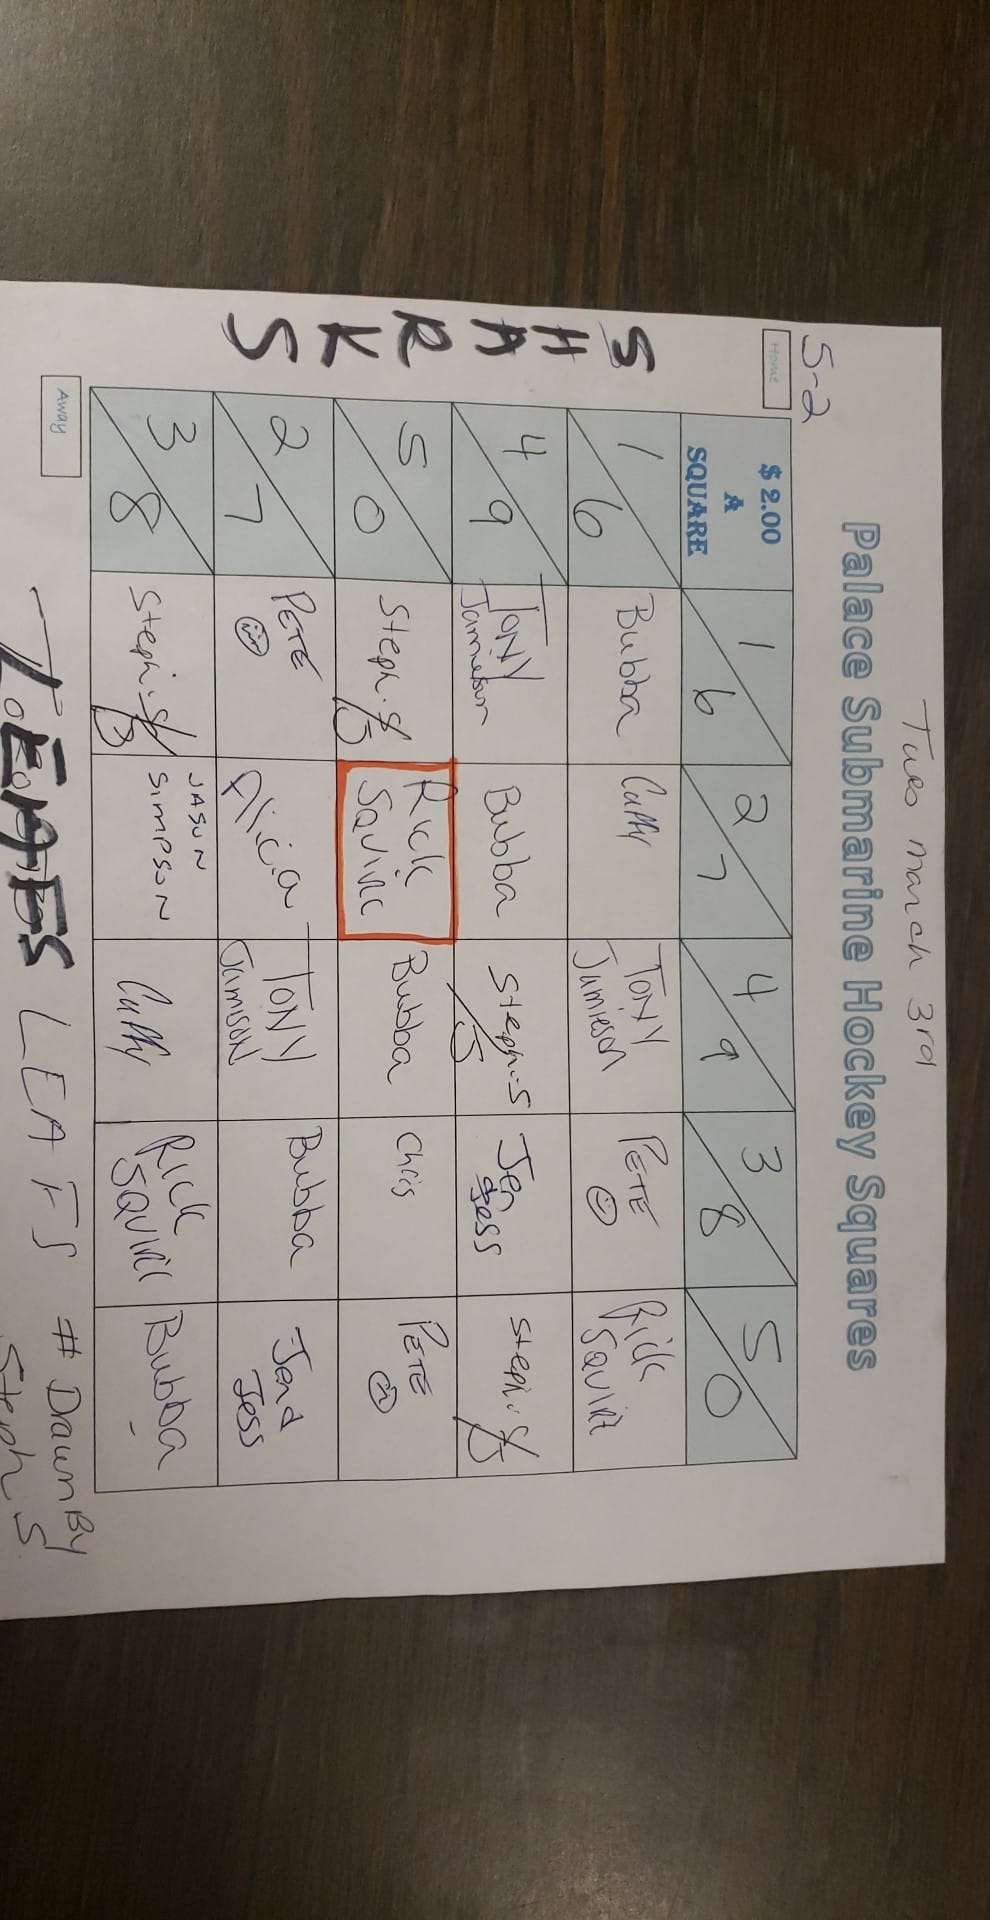 Tues march 3rd
Palace Submarine Hockey Squares
5-2
Home
$ 2.00 A SQUARE
1 6
2 7
4 9
3 8
5 0
SHARKS
1 6
Bubba
Cuffy
TONY Jamieson
PETE
Rick Squire
4 9
TONY Jamieson
Bubba
Steph.S
Jen Jess
Steph.S
5 0
Steph.S
Rick Squire
Bubba
Chris
PETE
2 7
PETE
Alicia
TONY Jamison
Bubba
Jen Jess
3 8
Steph.S
JASON SIMPSON
Cuffy
Rick Squire
Bubba
Away
LEAFS
# Drawn By
Steph S